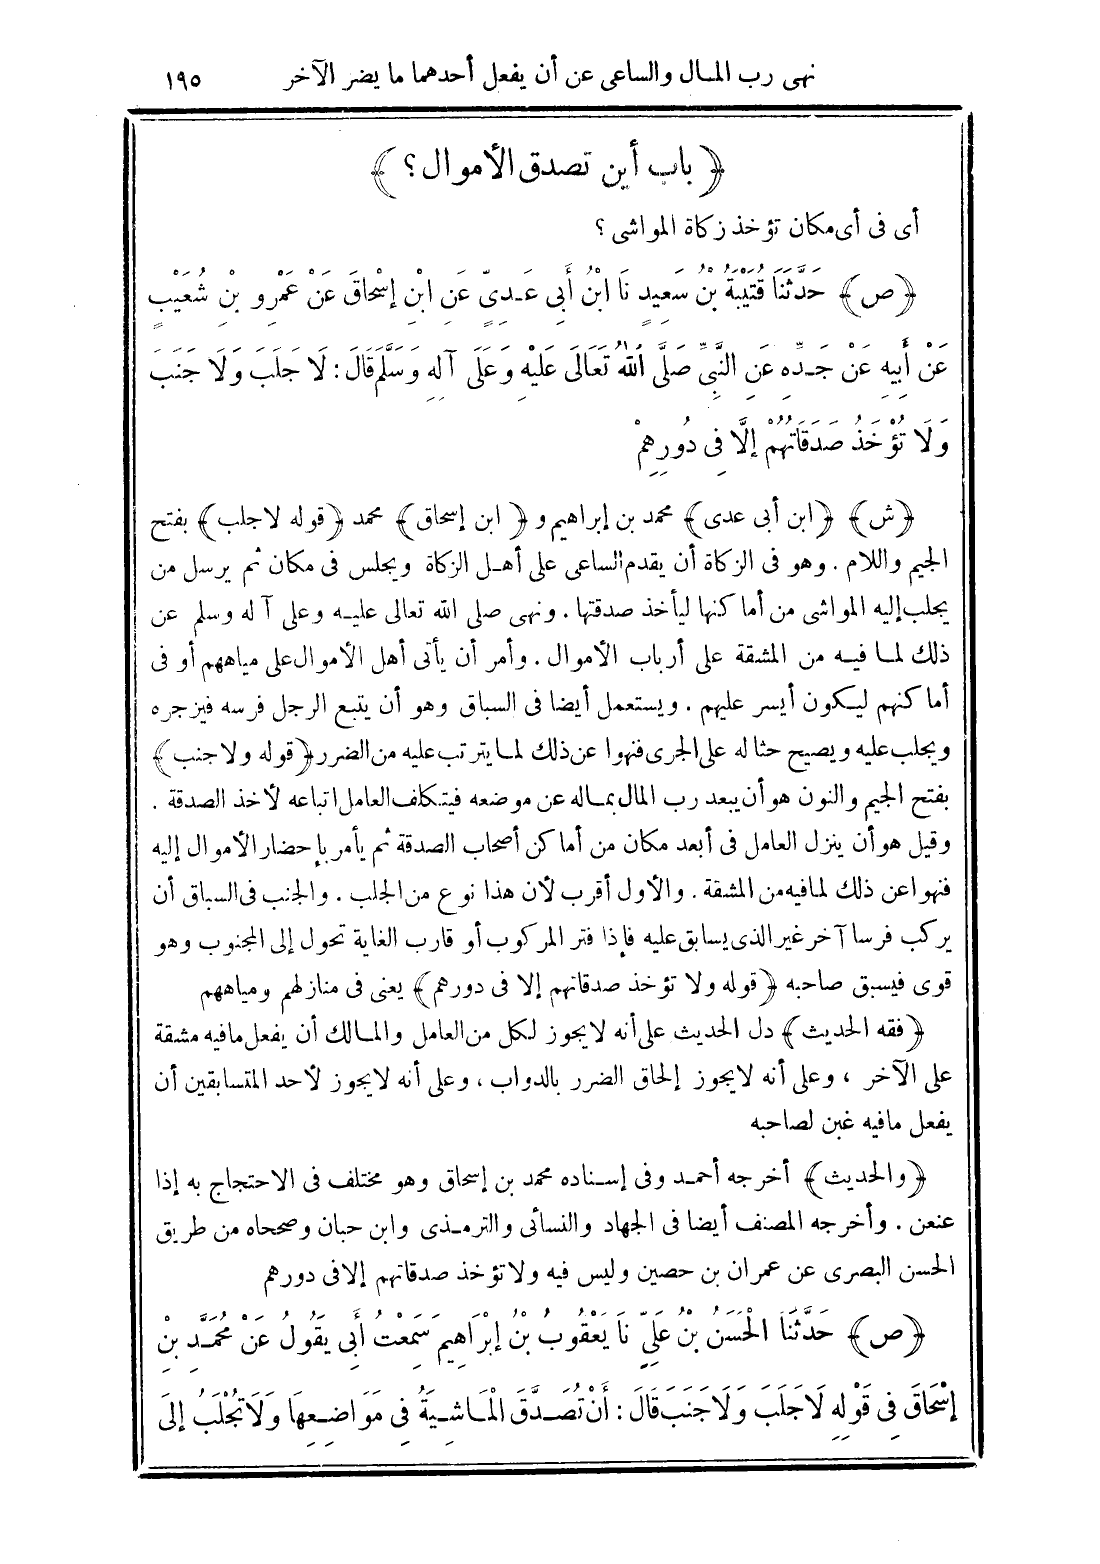 نهى رب المال والساعى عن أن يفعل أحدهما ما يضر الآخر ١٩٥
﴿ باب أين تصدق الأموال ؟ ﴾
أى فى أى مكان تؤخذ زكاة المواشى ؟
﴿ ص ﴾ حَدَّثَنَا قُتَيْبَةُ بْنُ سَعِيدٍ نَا ابْنُ أَبِي عَدِيٍّ عَنِ ابْنِ إِسْحَاقَ عَنْ عَمْرِو بْنِ شُعَيْبٍ
عَنْ أَبِيهِ عَنْ جَدِّهِ عَنِ النَّبِيِّ صَلَّى اللهُ تَعَالَى عَلَيْهِ وَعَلَى آلِهِ وَسَلَّمَ قَالَ : لَا جَلَبَ وَلَا جَنَبَ
وَلَا تُؤْخَذُ صَدَقَاتُهُمْ إِلَّا فِى دُورِهِمْ
﴿ ش ﴾ ﴿ ابن أبى عدى ﴾ محمد بن إبراهيم و ﴿ ابن إسحاق ﴾ محمد ﴿ قوله لا جلب ﴾ بفتح
الجيم واللام . وهو فى الزكاة أن يقدم الساعى على أهل الزكاة ويجلس فى مكان ثم يرسل من
يجلب إليه المواشى من أماكنها ليأخذ صدقتها . ونهى صلى الله تعالى عليه وعلى آله وسلم عن
ذلك لما فيه من المشقة على أرباب الأموال . وأمر أن يأتى أهل الأموال على مياههم أو فى
أماكنهم ليكون أيسر عليهم . ويستعمل أيضا فى السباق وهو أن يتبع الرجل فرسه فيزجره
ويجلب عليه ويصيح حثا له على الجرى فنهوا عن ذلك لما يترتب عليه من الضرر ﴿ قوله ولا جنب ﴾
بفتح الجيم والنون هو أن يبعد رب المال بماله عن موضعه فيتكلف العامل اتباعه لأخذ الصدقة .
وقيل هو أن ينزل العامل فى أبعد مكان من أماكن أصحاب الصدقة ثم يأمر بإحضار الأموال إليه
فنهوا عن ذلك لما فيه من المشقة . والأول أقرب لأن هذا نوع من الجلب . والجنب فى السباق أن
يركب فرسا آخر غير الذى يسابق عليه فإذا فتر المركوب أو قارب الغاية تحول إلى المجنوب وهو
قوى فيسبق صاحبه ﴿ قوله ولا تؤخذ صدقاتهم إلا فى دورهم ﴾ يعنى فى منازلهم ومياههم
﴿ فقه الحديث ﴾ دل الحديث على أنه لا يجوز لكل من العامل والمالك أن يفعل ما فيه مشقة
على الآخر ، وعلى أنه لا يجوز إلحاق الضرر بالدواب ، وعلى أنه لا يجوز لأحد المتسابقين أن
يفعل ما فيه غبن لصاحبه
﴿ والحديث ﴾ أخرجه أحمد وفى إسناده محمد بن إسحاق وهو مختلف فى الاحتجاج به إذا
عنعن . وأخرجه المصنف أيضا فى الجهاد والنسائى والترمذى وابن حبان وصححاه من طريق
الحسن البصرى عن عمران بن حصين وليس فيه ولا تؤخذ صدقاتهم إلا فى دورهم
﴿ ص ﴾ حَدَّثَنَا الْحَسَنُ بْنُ عَلِيٍّ نَا يَعْقُوبُ بْنُ إِبْرَاهِيمَ سَمِعْتُ أَبِي يَقُولُ عَنْ مُحَمَّدِ بْنِ
إِسْحَاقَ فِى قَوْلِهِ لَا جَلَبَ وَلَا جَنَبَ قَالَ : أَنْ تُصَدَّقَ الْمَاشِيَةُ فِى مَوَاضِعِهَا وَلَا تُجْلَبُ إِلَى